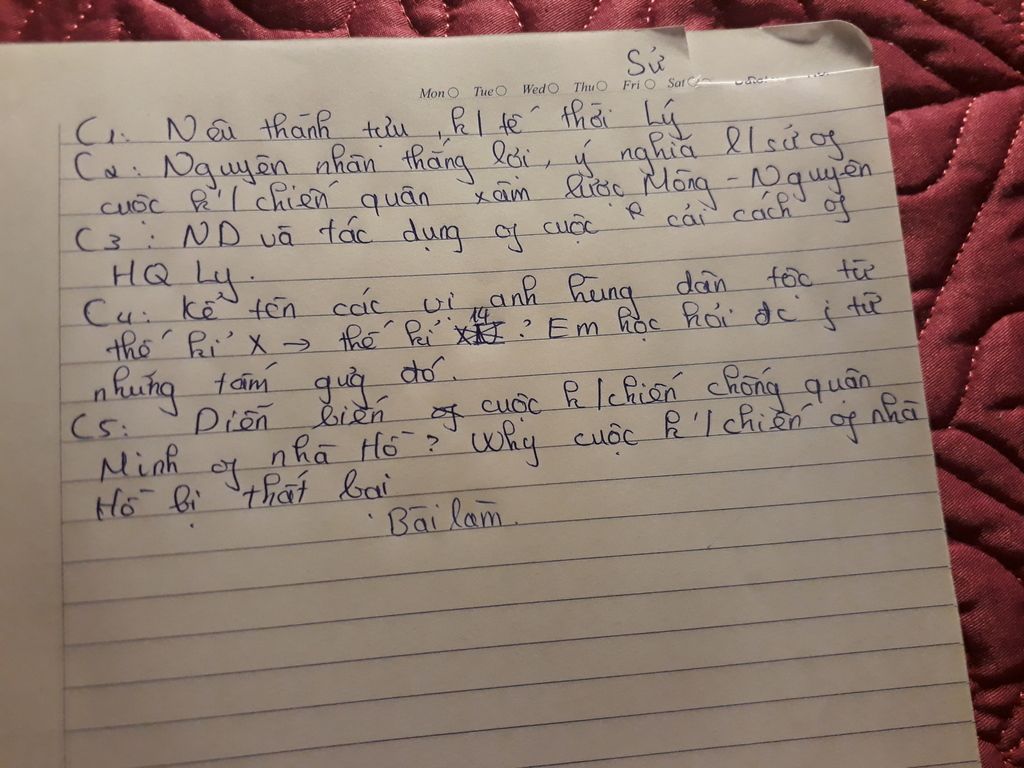 Sử
Mon Tue Wed Thu Fri Sat
C1: Nêu thành tựu, k/tế thời Lý
C2: Nguyên nhân thắng lợi, ý nghĩa l/sử of
cuộc k/chiến quân xâm lược Mông - Nguyên
C3: ND và tác dụng of cuộc cải cách of
HQ Ly.
C4: Kể tên các vị anh hùng dân tộc từ
thế kỉ X → thế kỉ 14? Em học hỏi đc j từ
những tấm gương đó.
C5: Diễn biến cuộc k/chiến chống quân
Minh of nhà Hồ? Why cuộc k/chiến of nhà
Hồ bị thất bại
Bài làm.